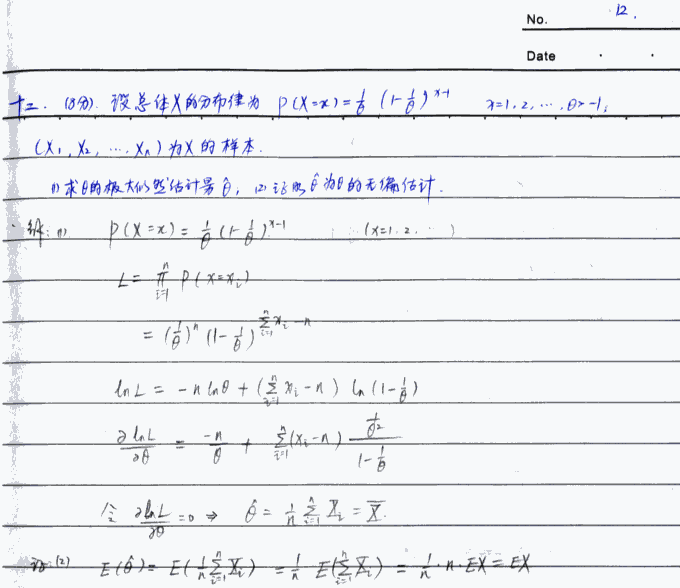 No. 12.
Date . .
十二. (8分). 设总体X的分布律为 P(X=x)=1/θ (1-1/θ)^(x-1) x=1,2,…,θ>-1;
(X₁,X₂,…,Xₙ)为X的样本.
(1)求θ的极大似然估计量θ̂, (2)证明θ̂为θ的无偏估计.
解:(1) P(X=x)=1/θ(1-1/θ)^(x-1) (x=1,2,…)
L=∏_{i=1}^{n} P(X=x_i)
=(1/θ)^n (1-1/θ)^(∑_{i=1}^{n} x_i-n)
ln L = -n lnθ + (∑_{i=1}^{n} x_i-n) ln(1-1/θ)
∂lnL/∂θ = -n/θ + ∑_{i=1}^{n}(x_i-n) (1/θ²)/(1-1/θ)
令 ∂lnL/∂θ=0 ⇒ θ̂ = 1/n ∑_{i=1}^{n} X_i = X̄.
(2) E(θ̂)=E(1/n ∑_{i=1}^{n} X_i) = 1/n E(∑_{i=1}^{n} X_i) = 1/n·n·EX=EX